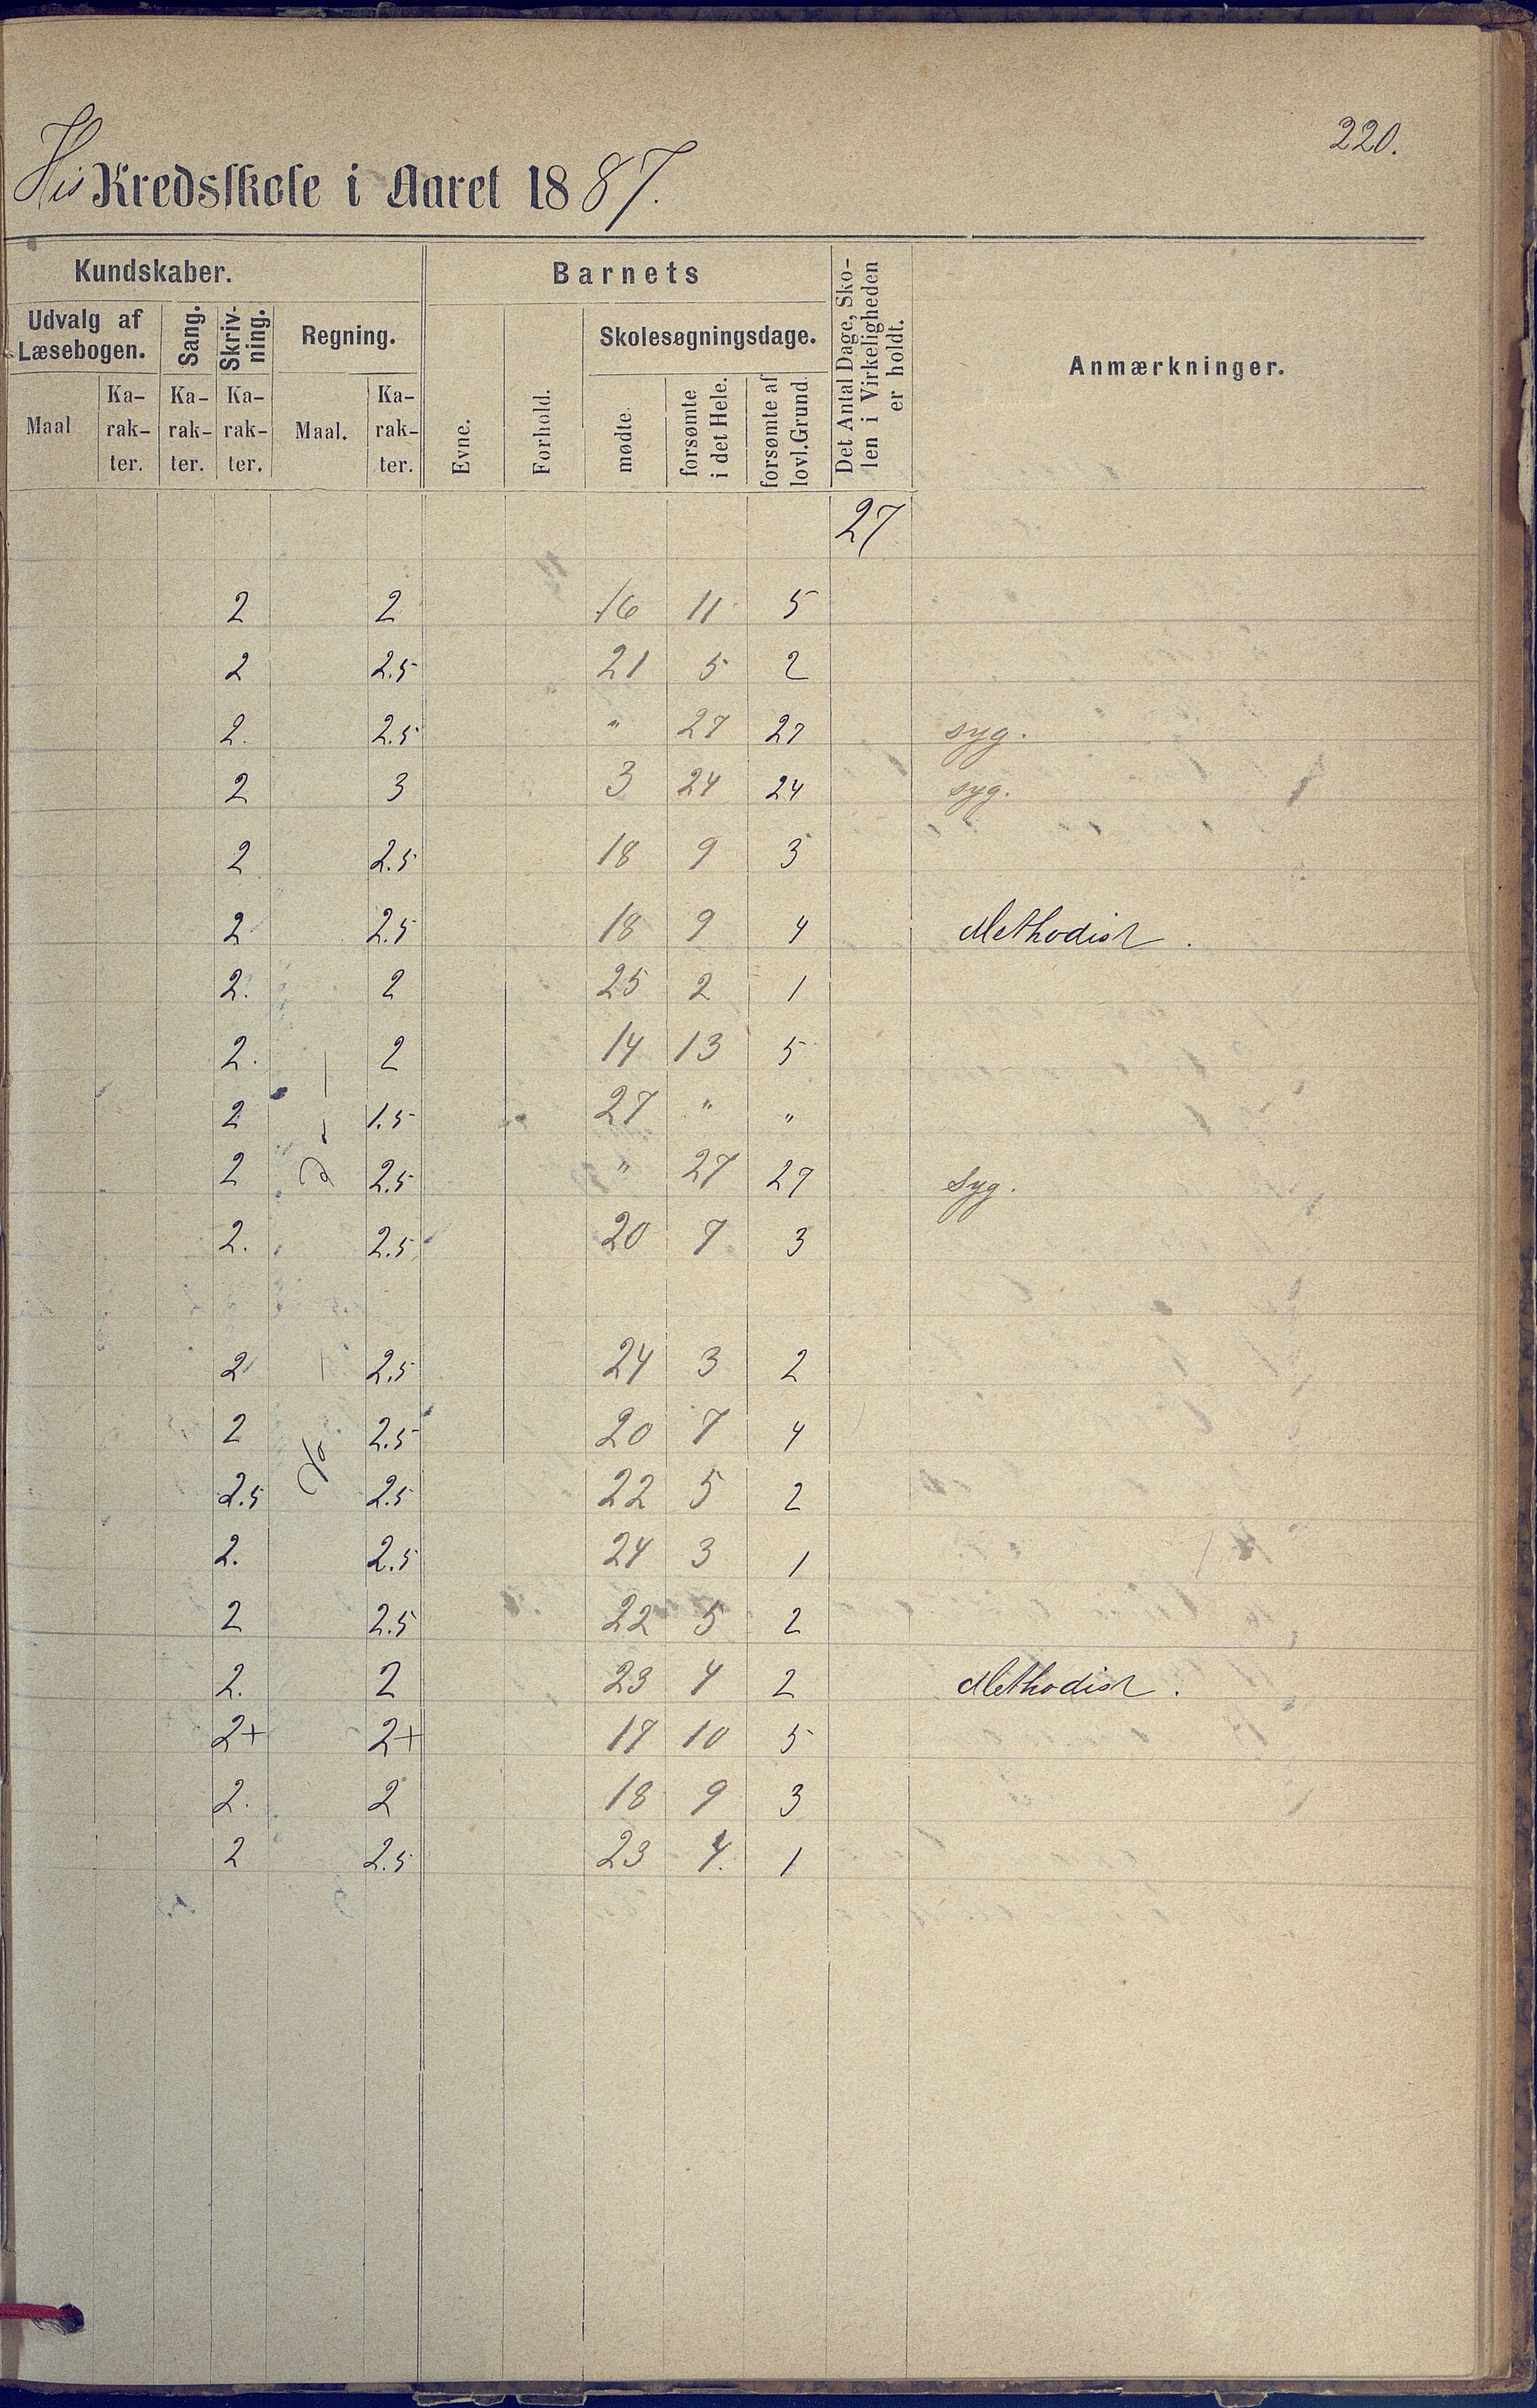 220.
His Kredsskole i Aaret 1887.
Kundskaber. Barnets Det Antal Dage, Sko-len i Virkeligheden er holdt. Anmærkninger.
Udvalg af Læsebogen. Sang. Skriv-ning. Regning. Evne. Forhold. Skolesøgningsdage.
Maal Ka-rak-ter. Ka-rak-ter. Ka-rak-ter. Maal. Ka-rak-ter. mødte. forsømte i det Hele. forsømte af lovl. Grund.
27
2 2 16 11 5
2 2.5 21 5 2
2. 2.5 " 27 27 syg.
2 3 3 24 24 syg.
2 2.5 18 9 3
2 2.5 18 9 4 Methodist.
2. 2 25 2 1
2. 2 14 13 5
2 1.5 27 " "
2 2.5 " 27 27 Syg.
2. 2.5 20 7 3
2 2.5 24 3 2
2 2.5 20 7 4
2.5 2.5 22 5 2
2. 2.5 24 3 1
2 2.5 22 5 2
2. 2 23 4 2 Methodist.
2+ 2+ 17 10 5
2. 2 18 9 3
2 2.5 23 4. 1